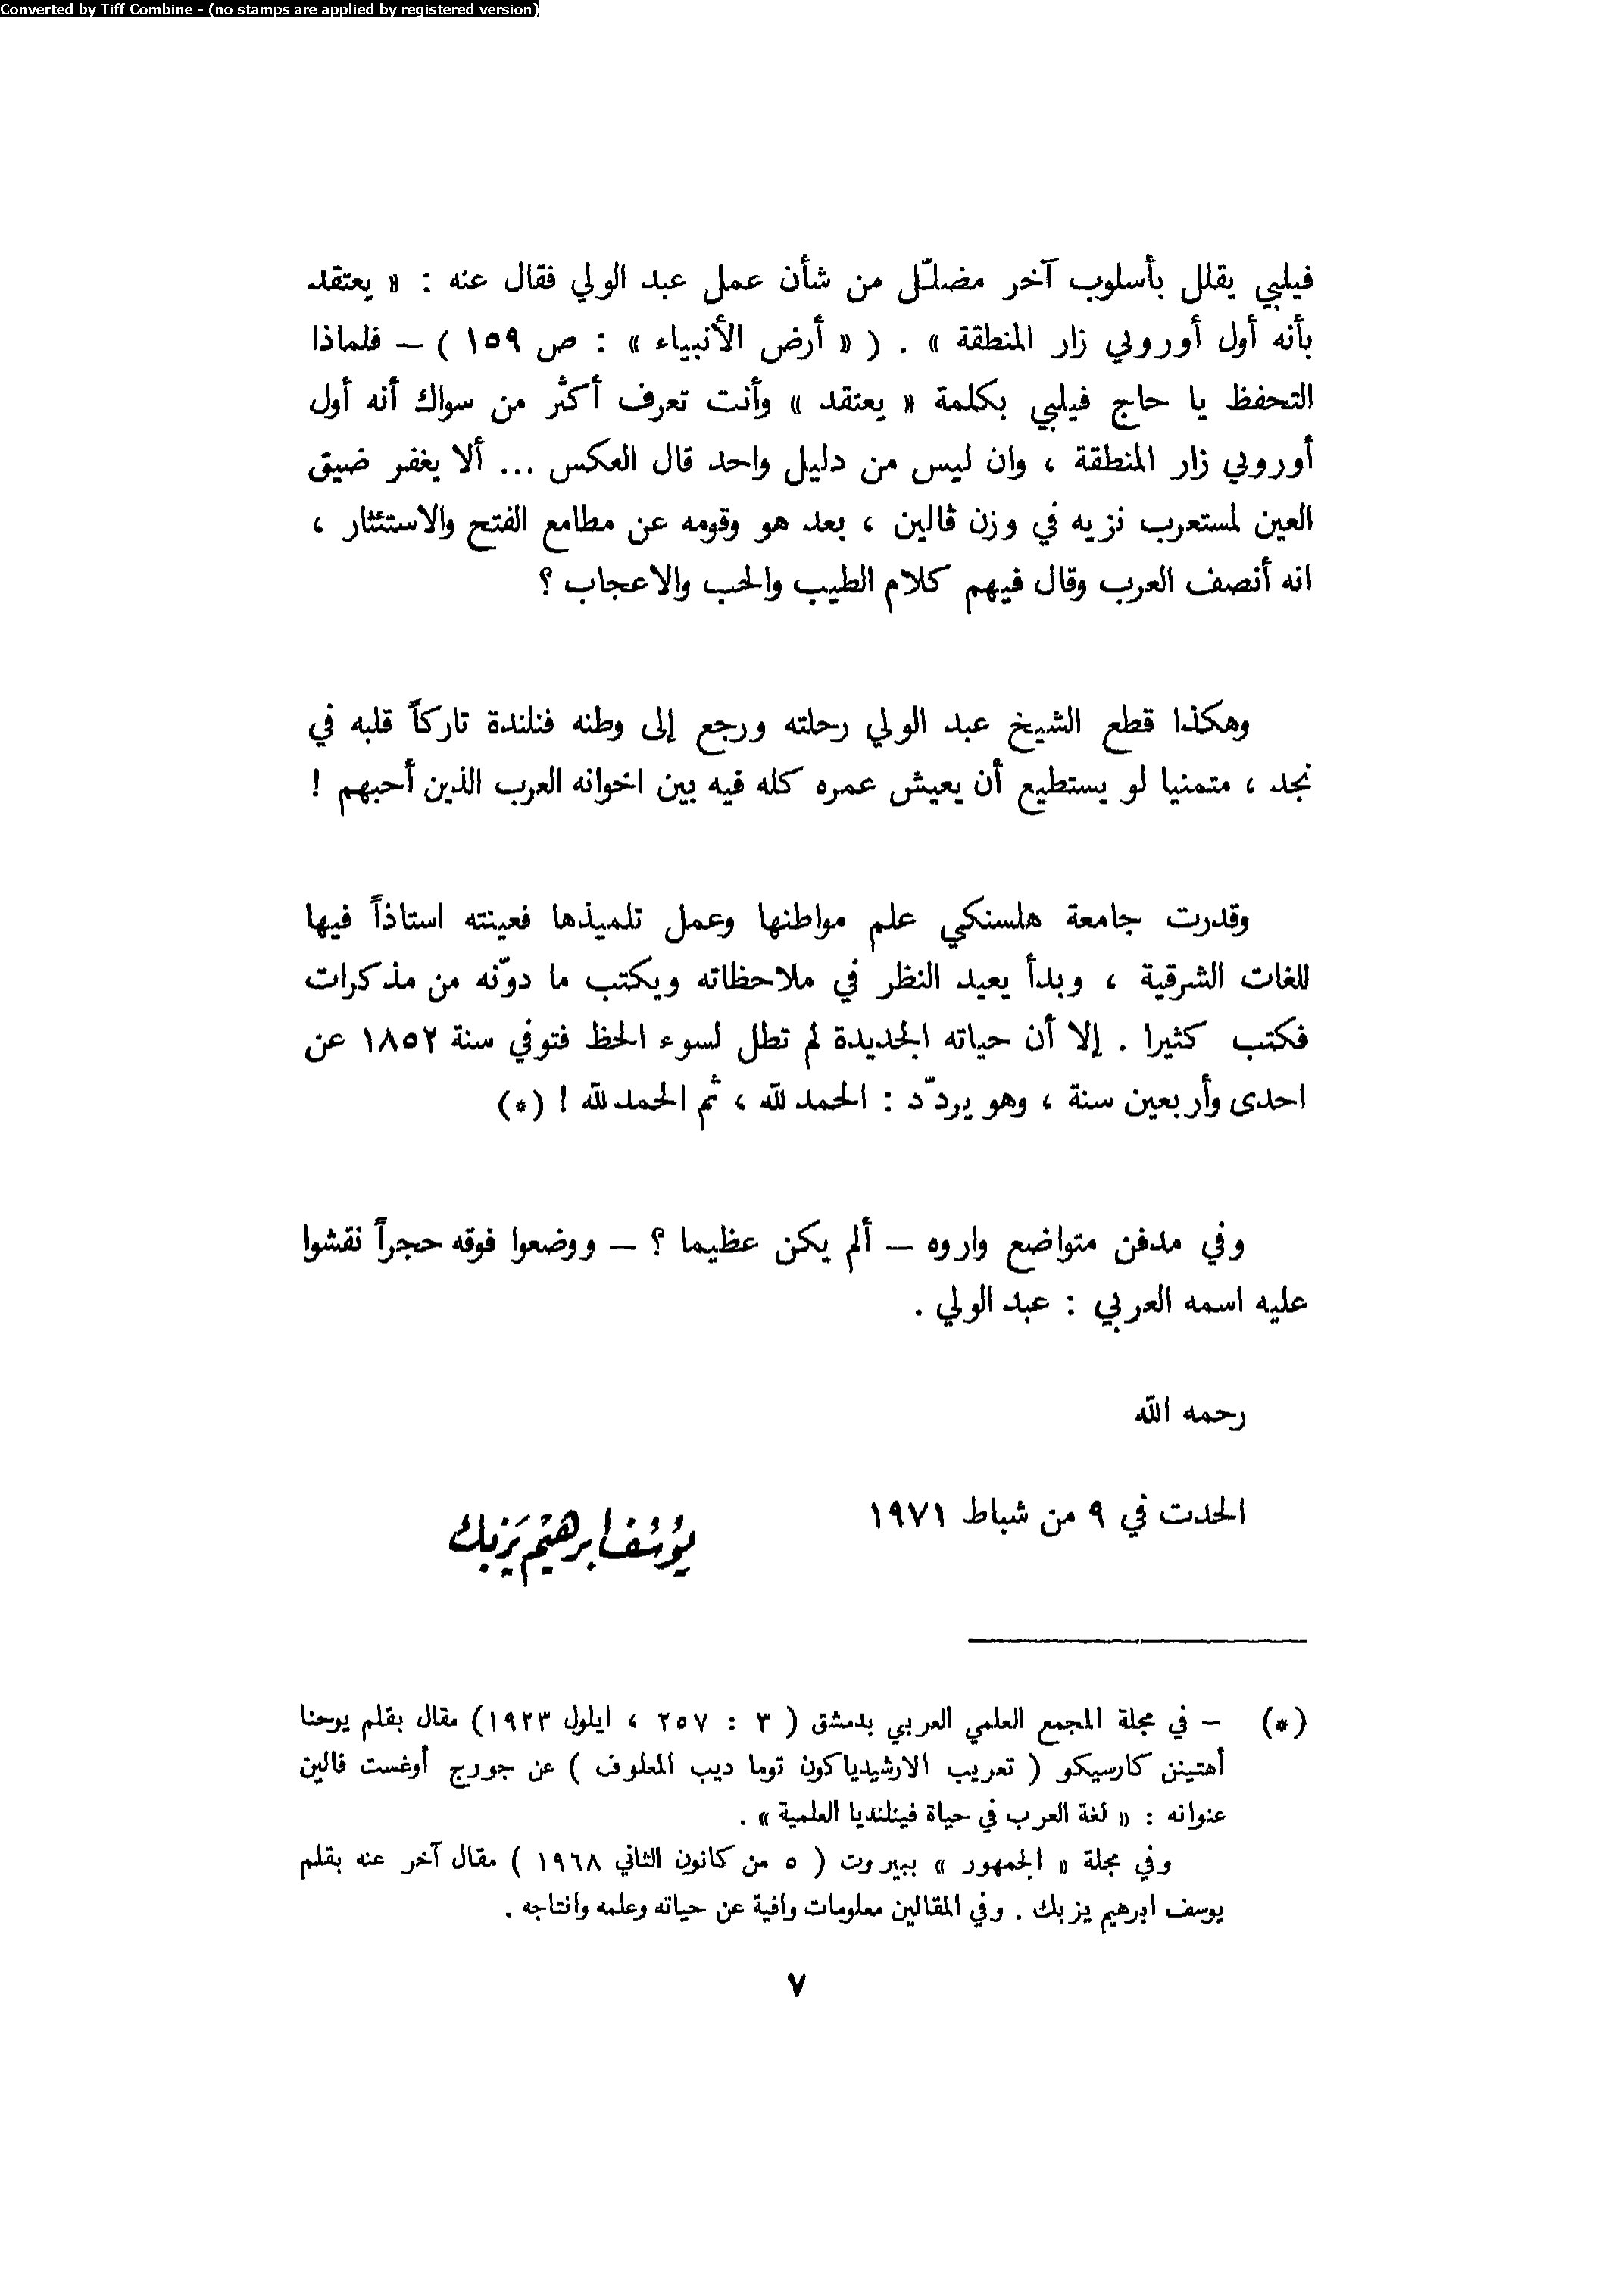 Converted by Tiff Combine - (no stamps are applied by registered version)
فيلبي يقلل بأسلوب آخر مضلّل من شأن عمل عبد الولي فقال عنه : « يعتقد
بأنه أول أوروبي زار المنطقة » . ( « أرض الأنبياء » : ص ١٥٩ ) – فلماذا
التحفظ يا حاج فيلبي بكلمة « يعتقد » وأنت تعرف أكثر من سواك أنه أول
أوروبي زار المنطقة ، وان ليس من دليل واحد قال العكس ... ألا يغفر ضيق
العين لمستعرب نزيه في وزن ڤالين ، بعد هو وقومه عن مطامع الفتح والاستئثار ،
انه أنصف العرب وقال فيهم كلام الطيب والحب والاعجاب ؟
وهكذا قطع الشيخ عبد الولي رحلته ورجع إلى وطنه فنلندة تاركاً قلبه في
نجد ، متمنيا لو يستطيع أن يعيش عمره كله فيه بين اخوانه العرب الذين أحبهم !
وقدرت جامعة هلسنكي علم مواطنها وعمل تلميذها فعينته استاذاً فيها
للغات الشرقية ، وبدأ يعيد النظر في ملاحظاته ويكتب ما دوّنه من مذكرات
فكتب كثيرا . إلا أن حياته الجديدة لم تطل لسوء الحظ فتوفي سنة ١٨٥٢ عن
احدى وأربعين سنة ، وهو يردّد : الحمد لله ، ثم الحمد لله ! (*)
وفي مدفن متواضع واروه – ألم يكن عظيما ؟ – ووضعوا فوقه حجراً نقشوا
عليه اسمه العربي : عبد الولي .
رحمه الله
الحدت في ٩ من شباط ١٩٧١
يوسف ابرهيم يزبك
(*) – في مجلة المجمع العلمي العربي بدمشق ( ٣ : ٢٥٧ ، ايلول ١٩٢٣) مقال بقلم يوحنا
أهتينن كارسيكو ( تعريب الارشيدياكون توما ديب المعلوف ) عن جورج أوغست ڤالين
عنوانه : « لغة العرب في حياة فينلنديا العلمية » .
وفي مجلة « الجمهور » ببيروت ( ٥ من كانون الثاني ١٩٦٨ ) مقال آخر عنه بقلم
يوسف ابرهيم يزبك . وفي المقالين معلومات وافية عن حياته وعلمه وانتاجه .
٧